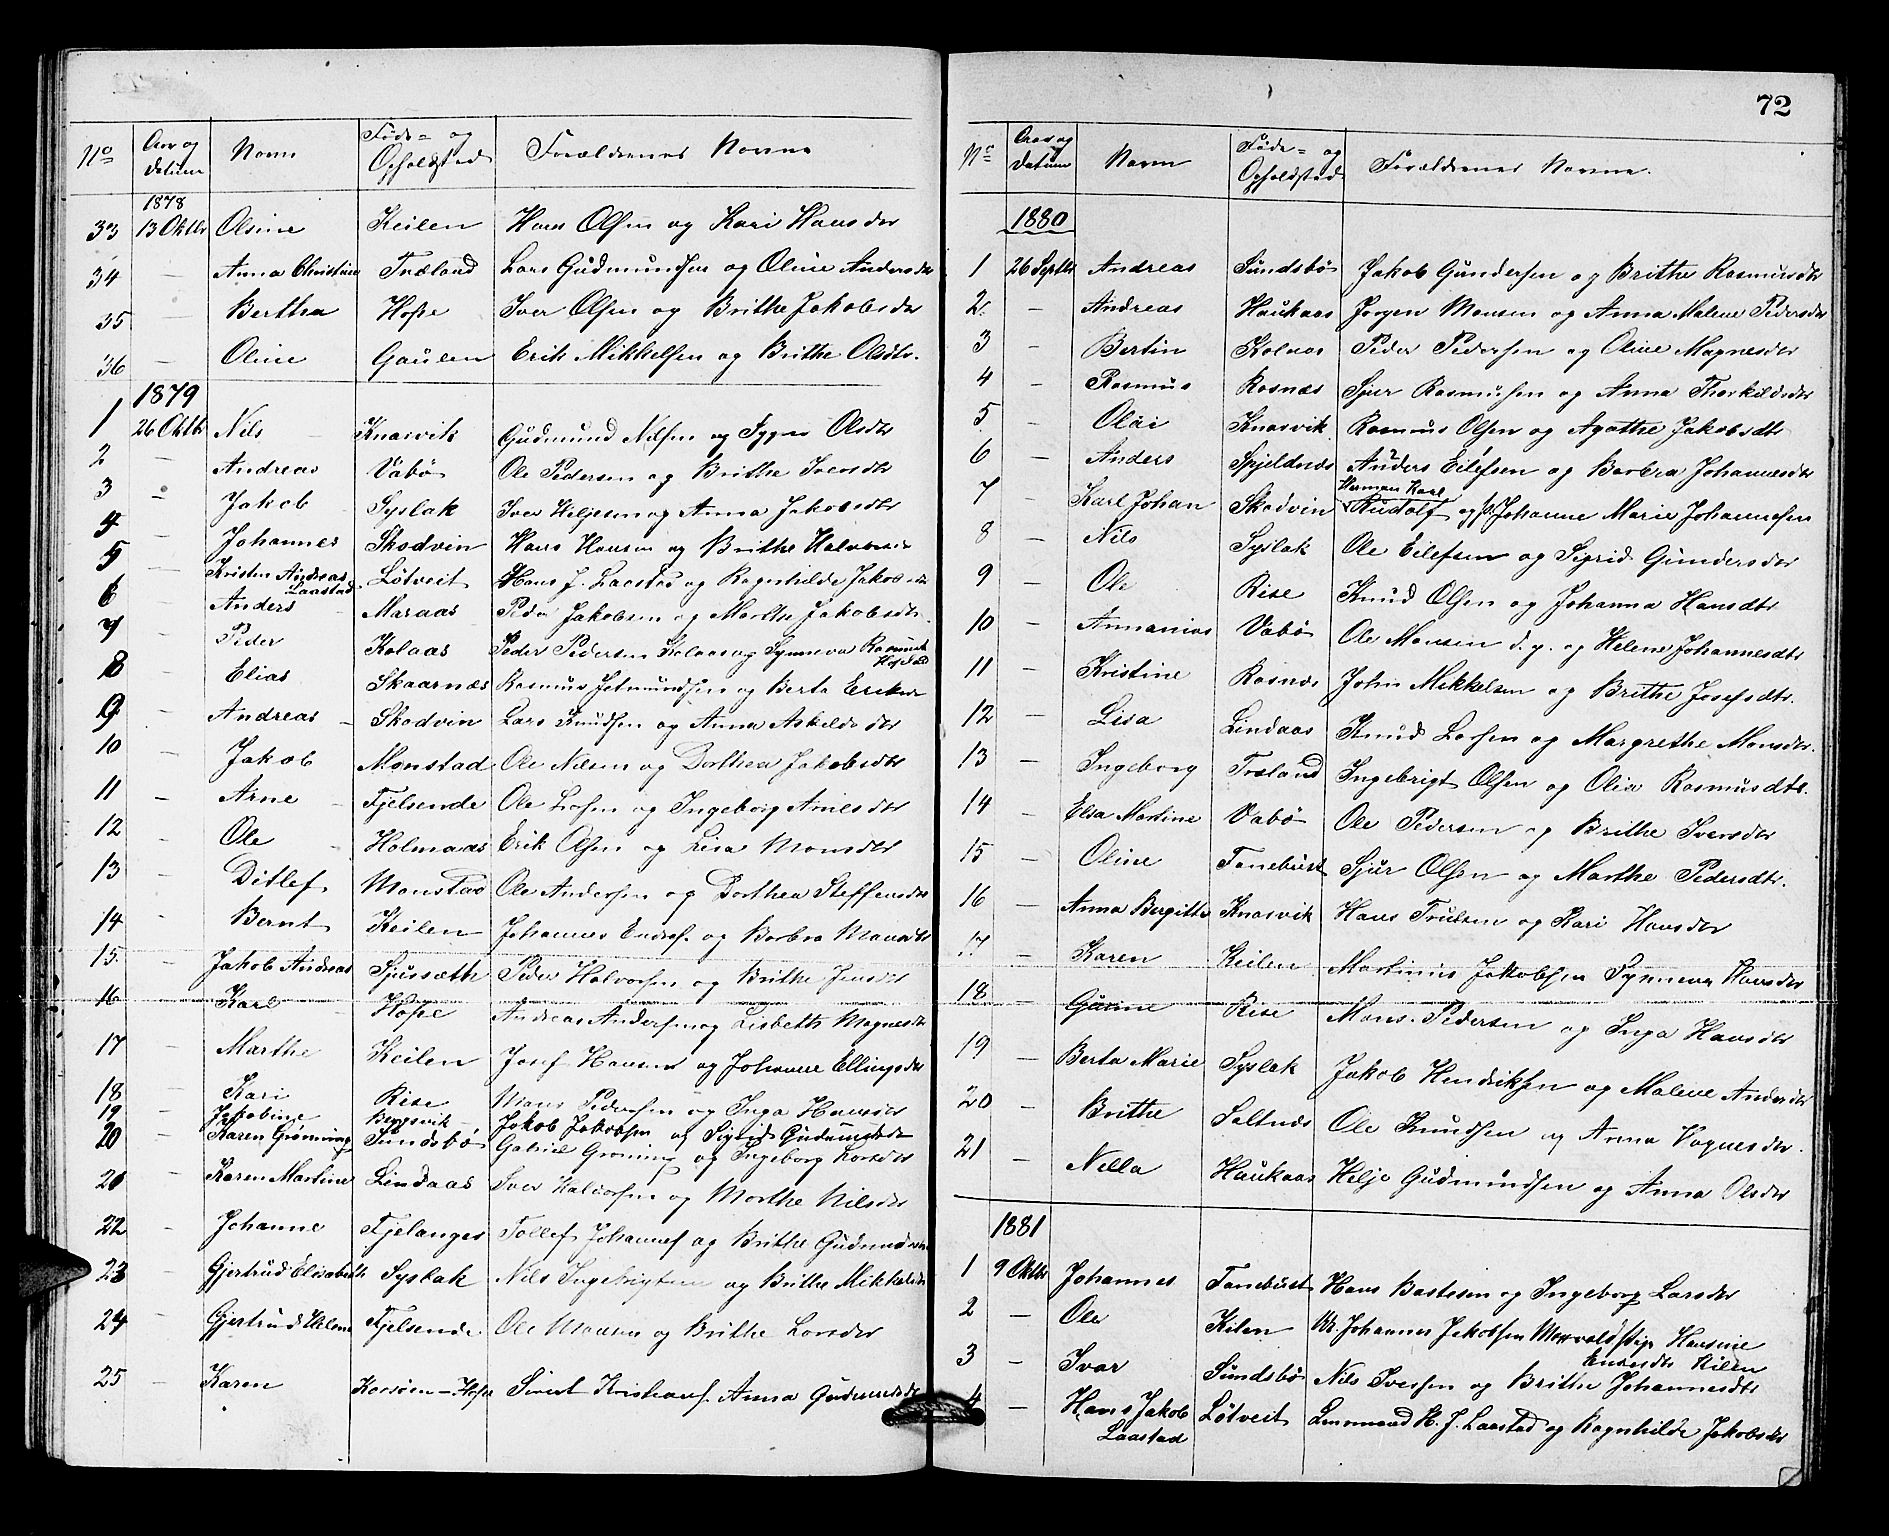 No Aar og Datum Navn Føde- og Opholdsted Forældrenes Navne
1878
33 13 Oktbr Olsine Keilen Hans Olsen og Kari Hansdtr
34 — Anna Christine Træland Lars Gudmundsen og Oline Andersdtr
35 — Bertha Hope Iver Olsen og Brithe Jakobsdtr
36 — Oline Gaulen Erik Mikkelsen og Brithe Olsdtr.
1879
1 26 Oktbr Nils Knarvik Gudmund Nilsen og Olsdtr
2 — Andreas Vabø Ole Pedersen og Brithe Iversdtr
3 — Jakob Syslak Iver Heljesen og Anna Jakobsdtr
4 — Johannes Skodvin Hans Hansen og Brithe
5 — Kristen Andreas Laastad Løtveit Hans J. Laastad og Ragnhilde Jakobsdtr
6 — Anders Maraas Peder Jakobsen og Marthe Jakobsdtr.
7 — Peder Kolaas Peder Pedersen Kolaas og Synneva Rasmusdtr
8 — Elias Skaarnæs Rasmus og Berta Eriksdtr
9 — Andreas Skodvin Lars Knudsen og Anna Askeldsdtr
10 — Jakob Monstad Ole Nilsen og Dorthea Jakobsdtr
11 — Arne Fjelsende Ole Larsen og Ingeborg Arnesdtr
12 — Ole Holmaas Erik Olsen og Lisa Monsdtr
13 — Ditlef Monstad Ole Andersen og Dorthea Steffensdtr
14 — Bernt Keilen Johannes Endres. og Barbra Monsdtr
15. — Jakob Andreas Sjursæth Peder Halvorsen og Brithe Jensdtr
16 — Karl Hope Andreas Andersen og Lisbeth Magnesdtr
17 — Marthe Keilen Josef Hansen og Johanne Ellingsdtr
18 — Kari Rise Mons Pedersen og Inga Hansdtr
19 — Jakobine Bergsvik Jakob Jakobsen og Sigrid Gudmundsdtr
20 — Karen Grønning Sundsbø Gabriel Grøning og Ingeborg Larsdtr
21 — Karen Martine Lindaas Iver Halvorsen og Marthe Nilsdtr
22 — Johanne Fjelanger Tollef Johannes. og Brithe Gudmundsdtr
23 — Gjertrud Elisabeth Syslak Nils Ingebrigtsen og Brithe Mikkelsdtr
24 — Gjertrud Helene Fjelsende Ole Monsen og Brithe Larsdtr
25 — Karen Hope Sivert Kristians. Anna Gudmundsdtr
72
No Aar og Datum Navn Føde- og Opholdsted Forældrenes Navne.
1880
1 26 Septbr Andreas Sundsbø Jakob Gundersen og Brithe Rasmusdtr
2. — Andreas Haukaas Jørgen Monsen og Anna Malene Pedersdtr
3 — Bertin Kolaas Peder Pedersen og Oline Magnesdtr
4 — Rasmus Rosnæs Sjur Rasmussen og Anna Thorkildsdtr
5 — Olai Knarvik Rasmus Olsen og Agathe Jakobsdtr
6 — Anders Spjeldnæs Anders Eilefsen og Barbra Johannesdtr
7 — Karl Johan Skodvin Herman Karl Rudolf og Johanne Marie Johannesen
8 — Nils Syslak Ole Eilefsen og Sigrid Gundersdtr
9 — Ole Rise Knud Olsen og Johanna Hansdtr
10 — Annanias Vabø Ole Monsen d. y. og Helene Johannesdtr
11 — Kristine Rosnæs John Mikkelsen og Brithe Josefsdtr.
12 — Lisa Lindaas Knud Larsen og Margrethe Monsdtr.
13 — Ingeborg Træland Ingebrigt Olsen og Olia Rasmusdtr.
14 — Elsa Martine Vabø Ole Pedersen og Brithe Iversdtr
15 — Oline Fanebust Sjur Olsen og Marthe Pedersdtr.
16 — Anna Bergitte Knarvik Hans Trulsen og Kari Hansdtr
17. — Karen Keilen Martinus Jakobsen Synneva Hansdtr
18 — Gurine Rise Mons Pedersen og Inga Hansdtr
19 — Berta Marie Syslak Jakob Hendriksen og Malene Andersdtr
20 — Brithe Saltnæs Ole Knudsen og Anna Vognesdtr.
21 — Nella Haukaas Helje Gudmundsen og Anna Olsdtr
1881
1 9 Oktbr Johannes Fanebust Hans Bastesen og Ingeborg Larsdtr
2 — Ole Kilen Johannes Jakobsen Hansine
Kilen
3 — Ivar Sundsbø Nils Iversen og Brithe Johannesdtr
4 — Hans Jakob Laastad Løtveit Lensmand H. J. Laastad og Ragnhilde Jakobsdtr